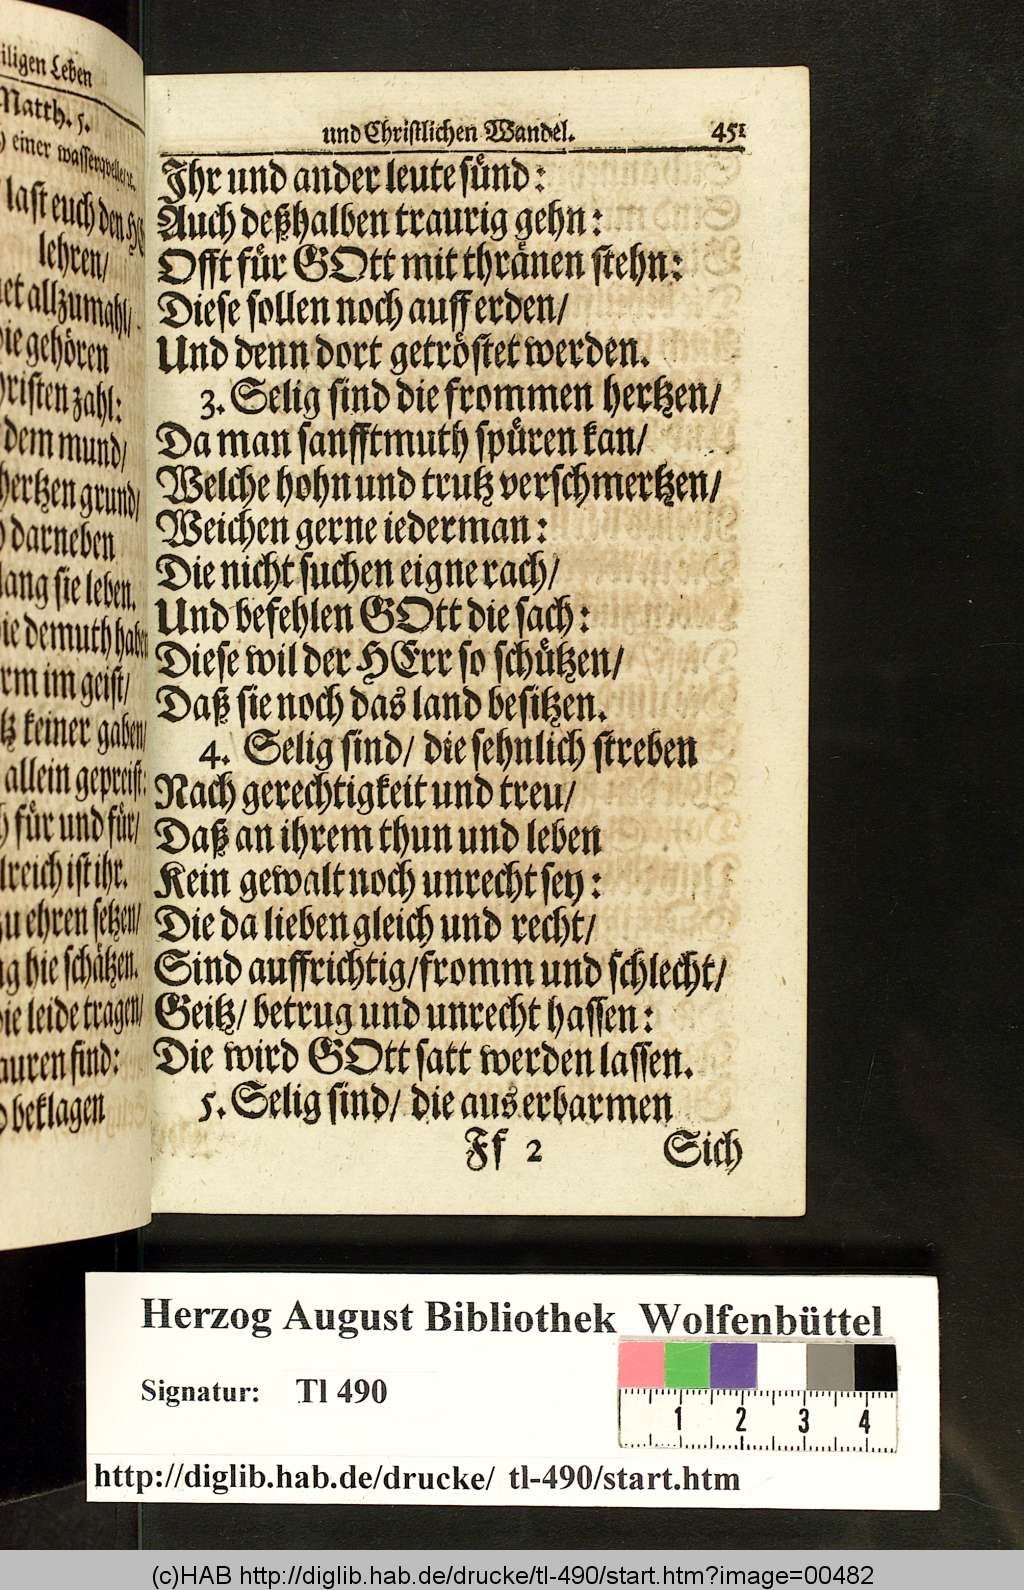 iligen Leben
Matth. 5.
einer wasserquelle/ ꝛc.
last euch den
lehren/
allzumahl/
gehören
zahl:
dem mund/
hertzen grund/
darneben
lang sie leben.
die demuth haben
im geist/
keiner gaben/
allein gepreist:
für und für/
ist ihr.
zu ehren setzen/
hie schätzen.
die leide tragen/
sind:
beklagen
und Christlichen Wandel. 451
Ihr und ander leute sünd:
Auch deßhalben traurig gehn:
Offt für GOtt mit thränen stehn:
Diese sollen noch auff erden/
Und denn dort getröstet werden.
3. Selig sind die frommen hertzen/
Da man sanfftmuth spüren kan/
Welche hohn und trutz verschmertzen/
Weichen gerne iederman:
Die nicht suchen eigne rach/
Und befehlen GOtt die sach:
Diese wil der HErr so schützen/
Daß sie noch das land besitzen.
4. Selig sind/ die sehnlich streben
Nach gerechtigkeit und treu/
Daß an ihrem thun und leben
Kein gewalt noch unrecht sey:
Die da lieben gleich und recht/
Sind auffrichtig/ fromm und schlecht/
Geitz/ betrug und unrecht hassen:
Die wird GOtt satt werden lassen.
5. Selig sind/ die aus erbarmen
Ff 2 Sich
Herzog August Bibliothek Wolfenbüttel
Signatur: Tl 490
1 2 3 4
http://diglib.hab.de/drucke/ tl-490/start.htm
(c)HAB http://diglib.hab.de/drucke/tl-490/start.htm?image=00482